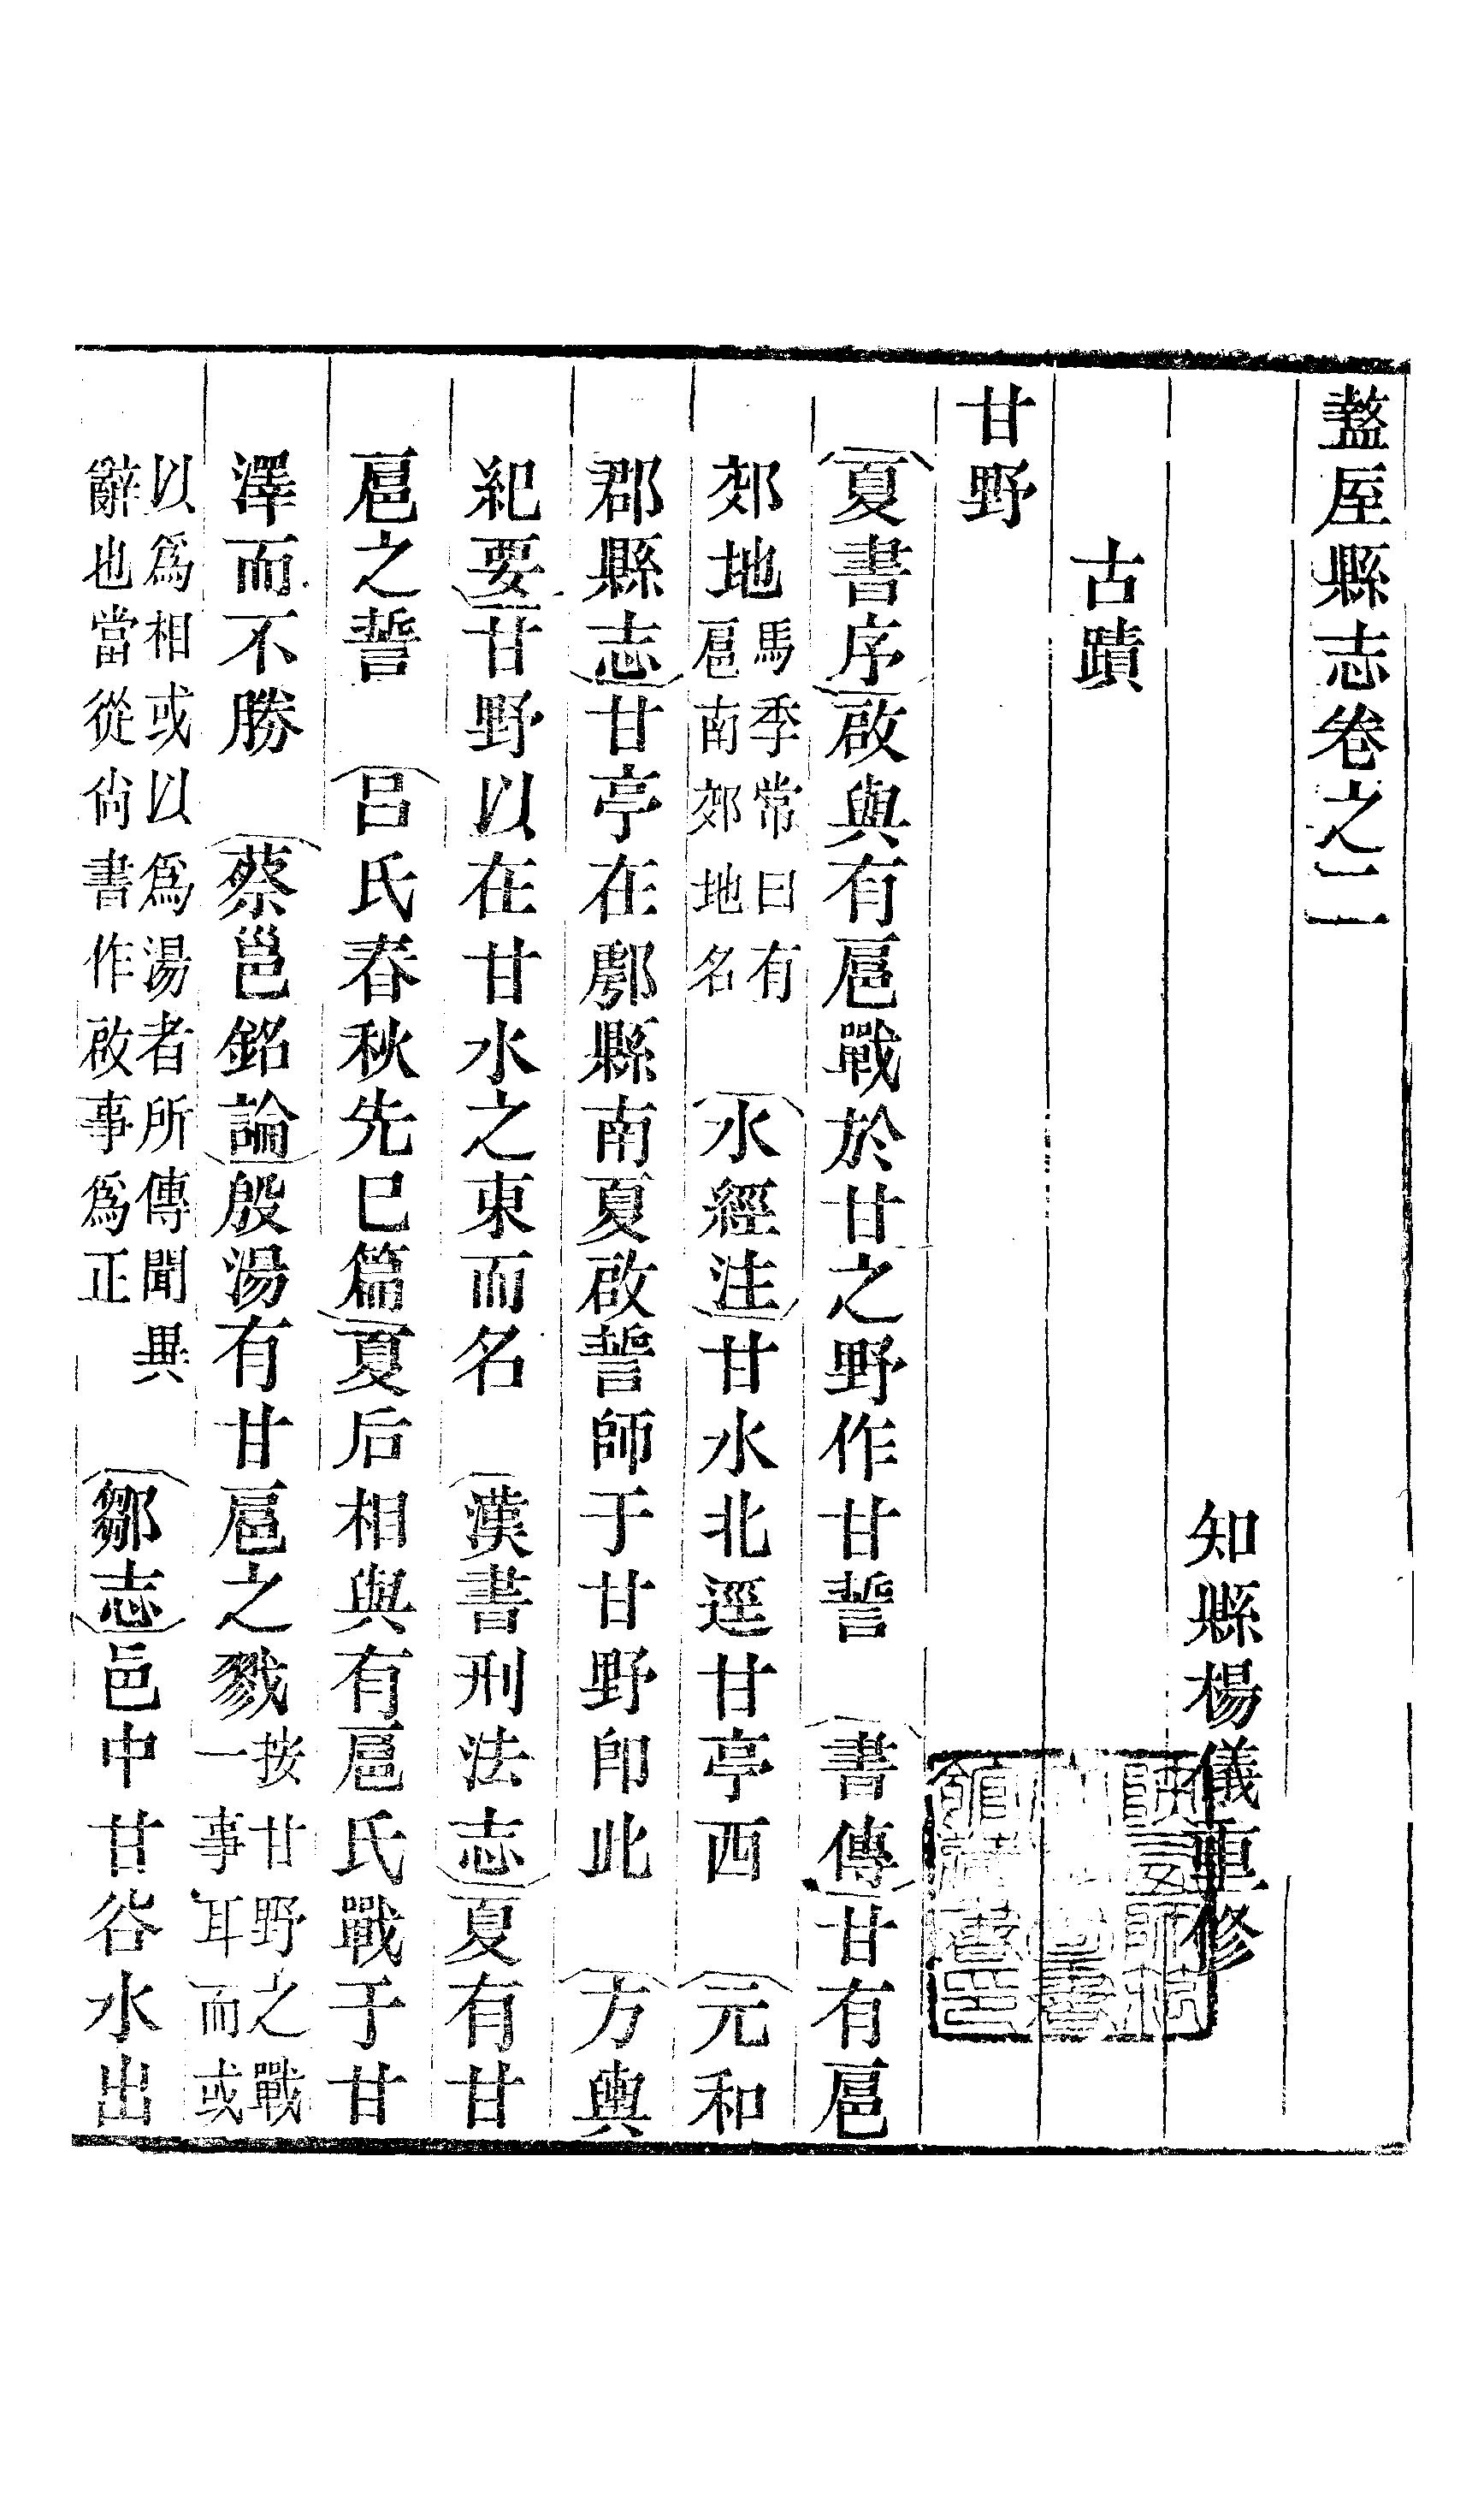 盩厔縣志卷之二
知縣楊儀重修
古蹟
甘野
夏書序啟與有扈戰於甘之野作甘誓　書傳甘有扈
郊地馬季常曰有扈南郊地名　水經注甘水北逕甘亭西　元和
郡縣志甘亭在鄠縣南夏啟誓師于甘野卽此　方輿
紀要甘野以在甘水之東而名　漢書刑法志夏有甘
扈之誓　呂氏春秋先巳篇夏后相與有扈氏戰于甘
澤而不勝　蔡邕銘論殷湯有甘扈之戮按甘野之戰一事耳而或
以爲相或以爲湯者所傳聞異辭也當從尙書作啟事爲正　鄒志邑中甘谷水出